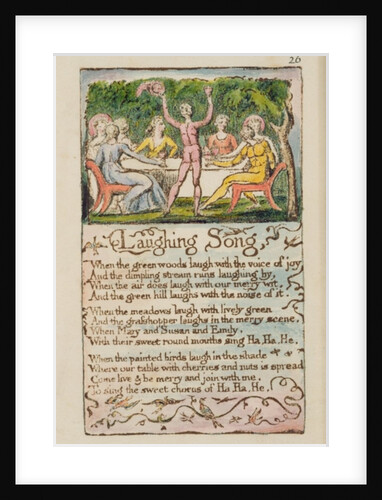 26
Laughing Song,
When the green woods laugh with the voice of joy
And the dimpling stream runs laughing by,
When the air does laugh with our merry wit,
And the green hill laughs with the noise of it.
When the meadows laugh with lively green
And the grasshopper laughs in the merry scene,
When Mary and Susan and Emily,
With their sweet round mouths sing Ha, Ha, He.
When the painted birds laugh in the shade
Where our table with cherries and nuts is spread
Come live & be merry and join with me,
To sing the sweet chorus of Ha, Ha, He.